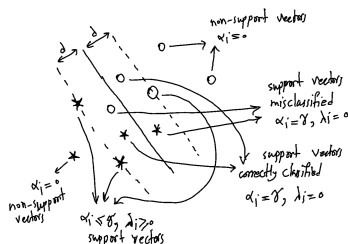 non-support vectors
αi=0
d
d
support vectors
misclassified
αi=γ, λi=0
support vectors
correctly clarified
αi=γ, λi=0
αi=0
non-support
vectors
αi≤γ, λi≥0
support vectors